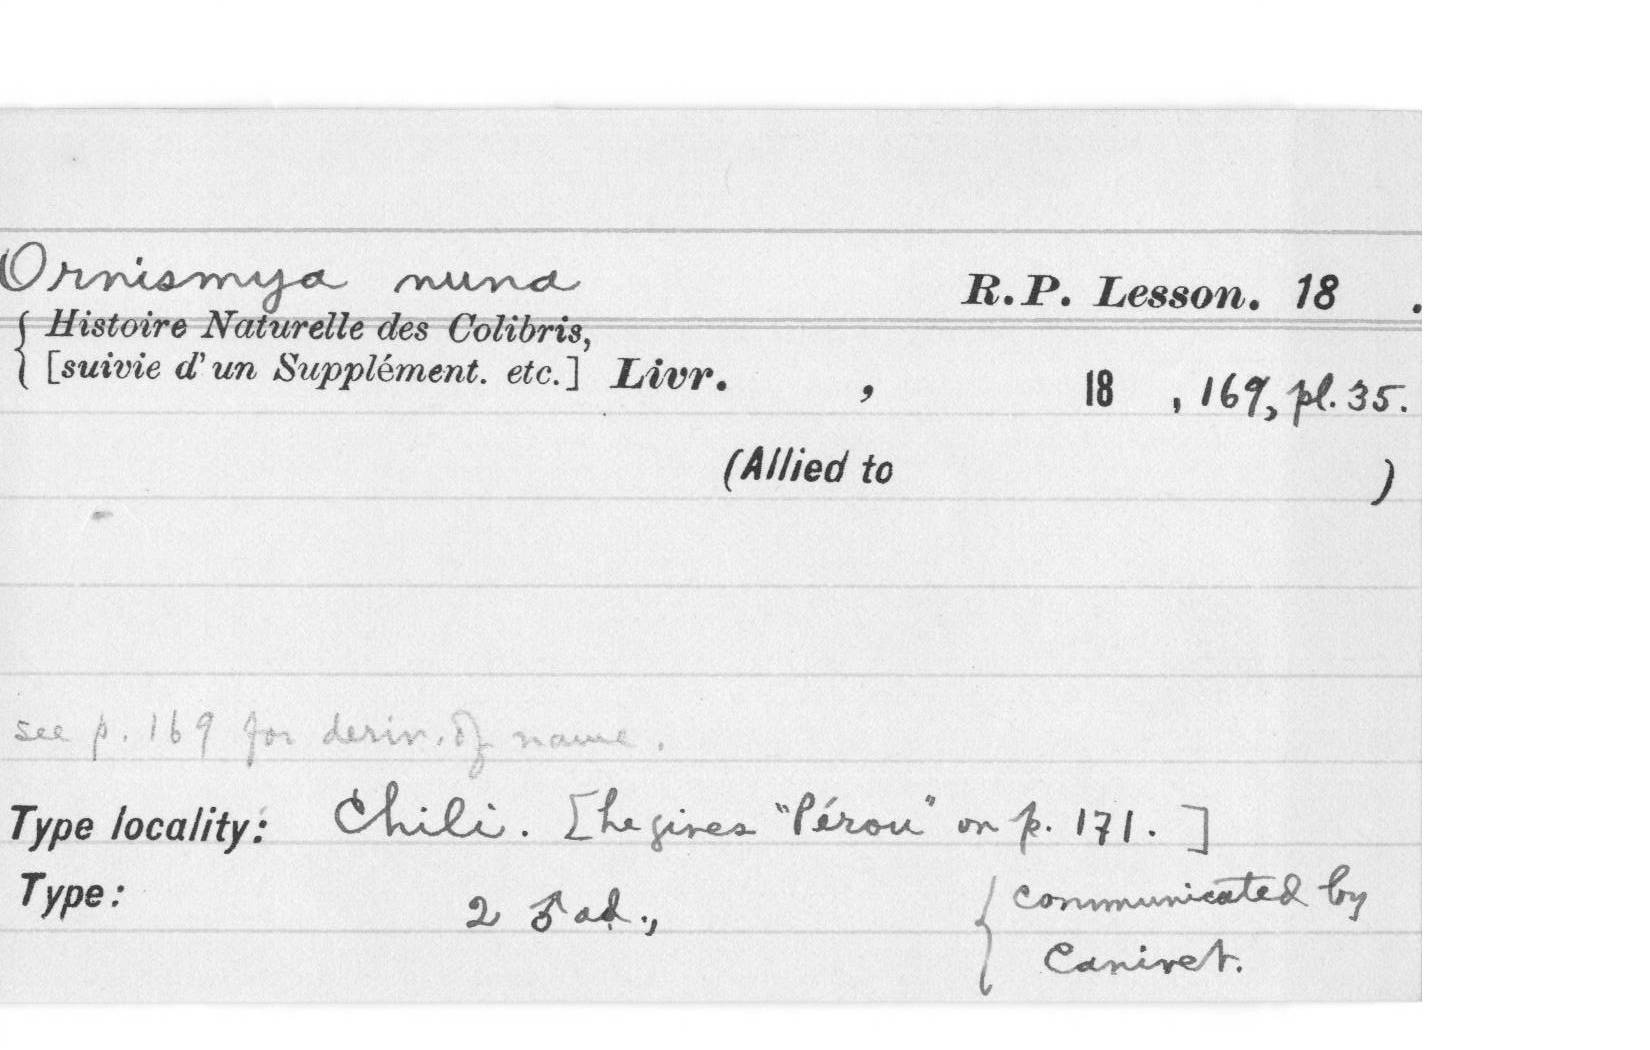 Ornismya nuna R.P. Lesson. 18 .
{ Histoire Naturelle des Colibris,
[suivie d'un Supplément. etc.] Livr. , 18 , 169, pl. 35.
(Allied to )
see p. 169 for deriv. of name.
Type locality: Chili. [he gives "Pérou" on p. 171.]
Type: 2 ♂ ad., { communicated by
Canivet.